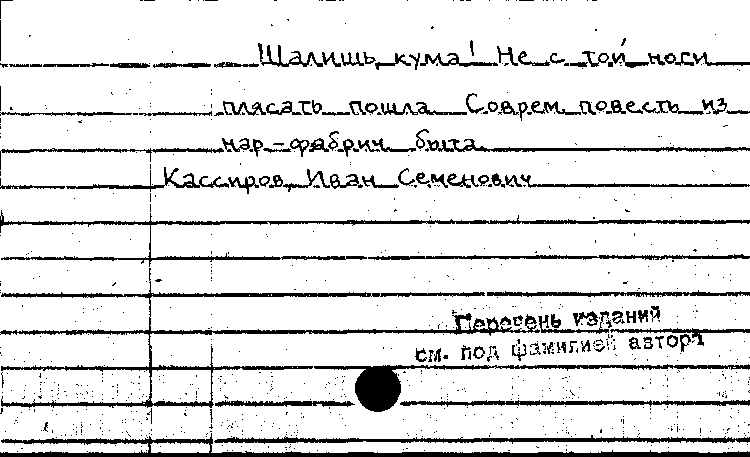 Шалишь, кума! Не с той ноги
плясать пошла. Соврем. повесть из
нар.-фабрич. быта.
Кассиров, Иван Семенович
Перечень изданий
см. под фамилией автора